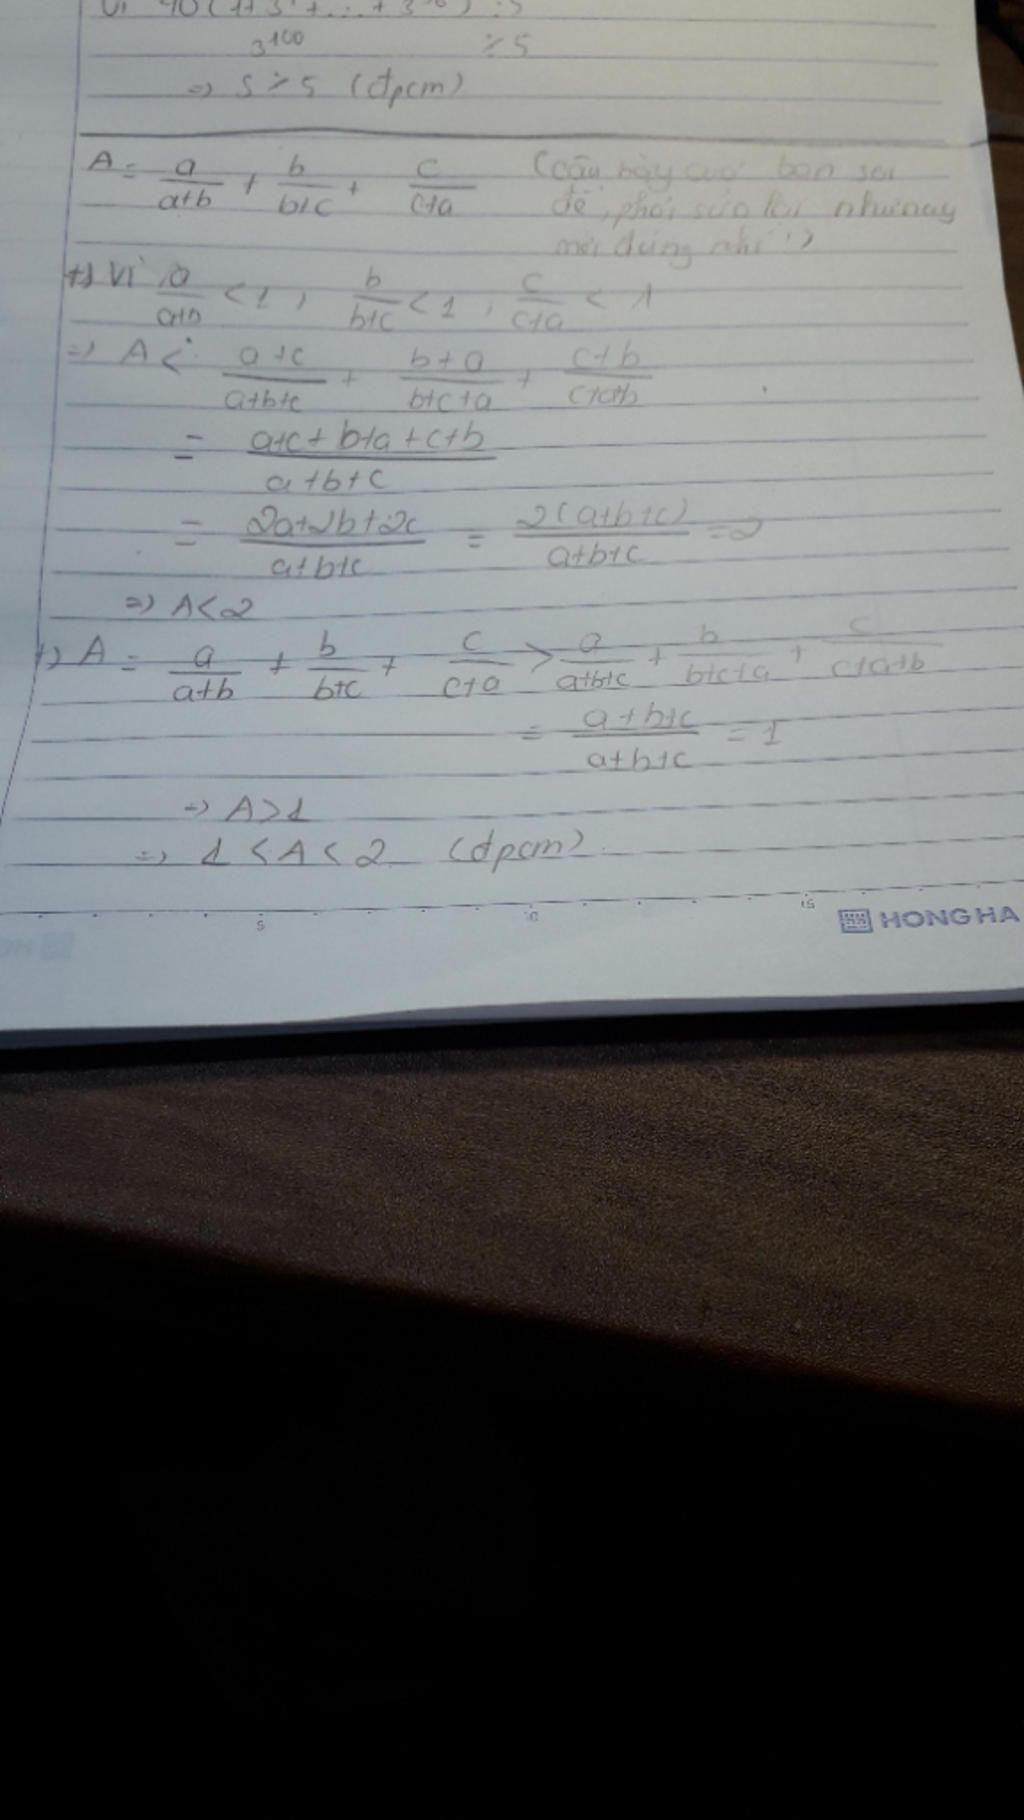 Vì 40(1+3⁴+...+3⁹⁶) ⋮ 5
3¹⁰⁰ ⋮ 5
=> S ⋮ 5 (đpcm)
A = a/(a+b) + b/(b+c) + c/(c+a) (câu này của bạn sai
đề, phải sửa lại như này
mới đúng nhé!)
+) Vì a/(a+b) < 1, b/(b+c) < 1, c/(c+a) < 1
=> A < (a+c)/(a+b+c) + (b+a)/(b+c+a) + (c+b)/(c+a+b)
= (a+c+b+a+c+b)/(a+b+c)
= (2a+2b+2c)/(a+b+c) = 2(a+b+c)/(a+b+c) = 2
=> A < 2
+) A = a/(a+b) + b/(b+c) + c/(c+a) > a/(a+b+c) + b/(b+c+a) + c/(c+a+b)
= (a+b+c)/(a+b+c) = 1
=> A > 1
=> 1 < A < 2 (đpcm).
5 10 15
HONG HA